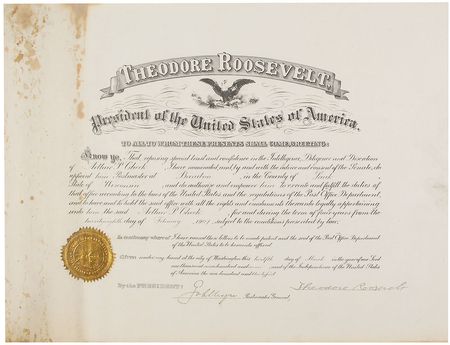 THEODORE ROOSEVELT,
President of the United States of America.
TO ALL TO WHOM THESE PRESENTS SHALL COME, GREETING:
Know ye, That reposing special trust and confidence in the Intelligence, Diligence and Discretion
of Arthur P. I have nominated and, by and with the advice and consent of the Senate, do
appoint him Postmaster at in the County of
State of Wisconsin and do authorize and empower him to execute and fulfil the duties of
that office according to the laws of the United States and the regulations of the Post Office Department,
and to have and to hold the said office with all the rights and emoluments thereunto legally appertaining
unto him the said Arthur P. for and during the term of four years from the
day of February subject to the conditions prescribed by law.
In testimony whereof I have caused these letters to be made patent and the seal of the Post Office Department
of the United States to be hereunto affixed.
Given under my hand at the city of Washington this day of March in the year of our Lord
one thousand nine hundred and and of the Independence of the United States
of America the one hundred and
By the PRESIDENT:
Postmaster General. Theodore Roosevelt